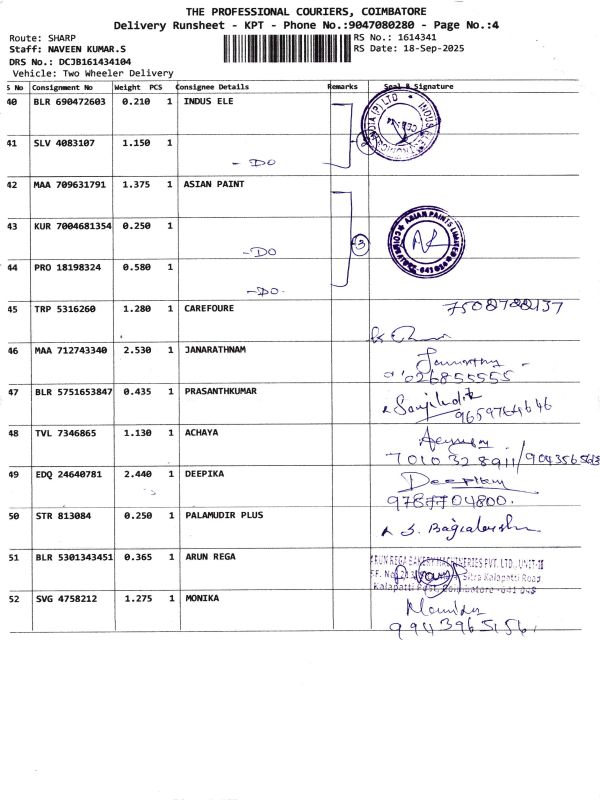 THE PROFESSIONAL COURIERS, COIMBATORE
Delivery Runsheet - KPT - Phone No.:9047080280 - Page No.:4
Route: SHARP RS No.: 1614341
Staff: NAVEEN KUMAR.S RS Date: 18-Sep-2025
DRS No.: DCJB161434104
Vehicle: Two Wheeler Delivery
S No Consignment No Weight PCS Consignee Details Remarks Seal & Signature
40 BLR 690472603 0.210 1 INDUS ELE
41 SLV 4083107 1.150 1
- DO
42 MAA 709631791 1.375 1 ASIAN PAINT
ASIAN PAINTS LIMITED
43 KUR 7004681354 0.250 1
-DO 3
44 PRO 18198324 0.580 1
-DO-
45 TRP 5316260 1.280 1 CAREFOURE
46 MAA 712743340 2.530 1 JANARATHNAM
47 BLR 5751653847 0.435 1 PRASANTHKUMAR
9659764646
48 TVL 7346865 1.130 1 ACHAYA
7010328911/
49 EDQ 24640781 2.440 1 DEEPIKA
Deepika
9787704800.
50 STR 813084 0.250 1 PALAMUDIR PLUS
51 BLR 5301343451 0.365 1 ARUN REGA
ARUN REGA BAKERY MACHINERIES PVT. LTD., UNIT-II
Sitra Kalapatti Road
Kalapatti Post, Coimbatore -641 048
52 SVG 4758212 1.275 1 MONIKA
Monika
9943965156